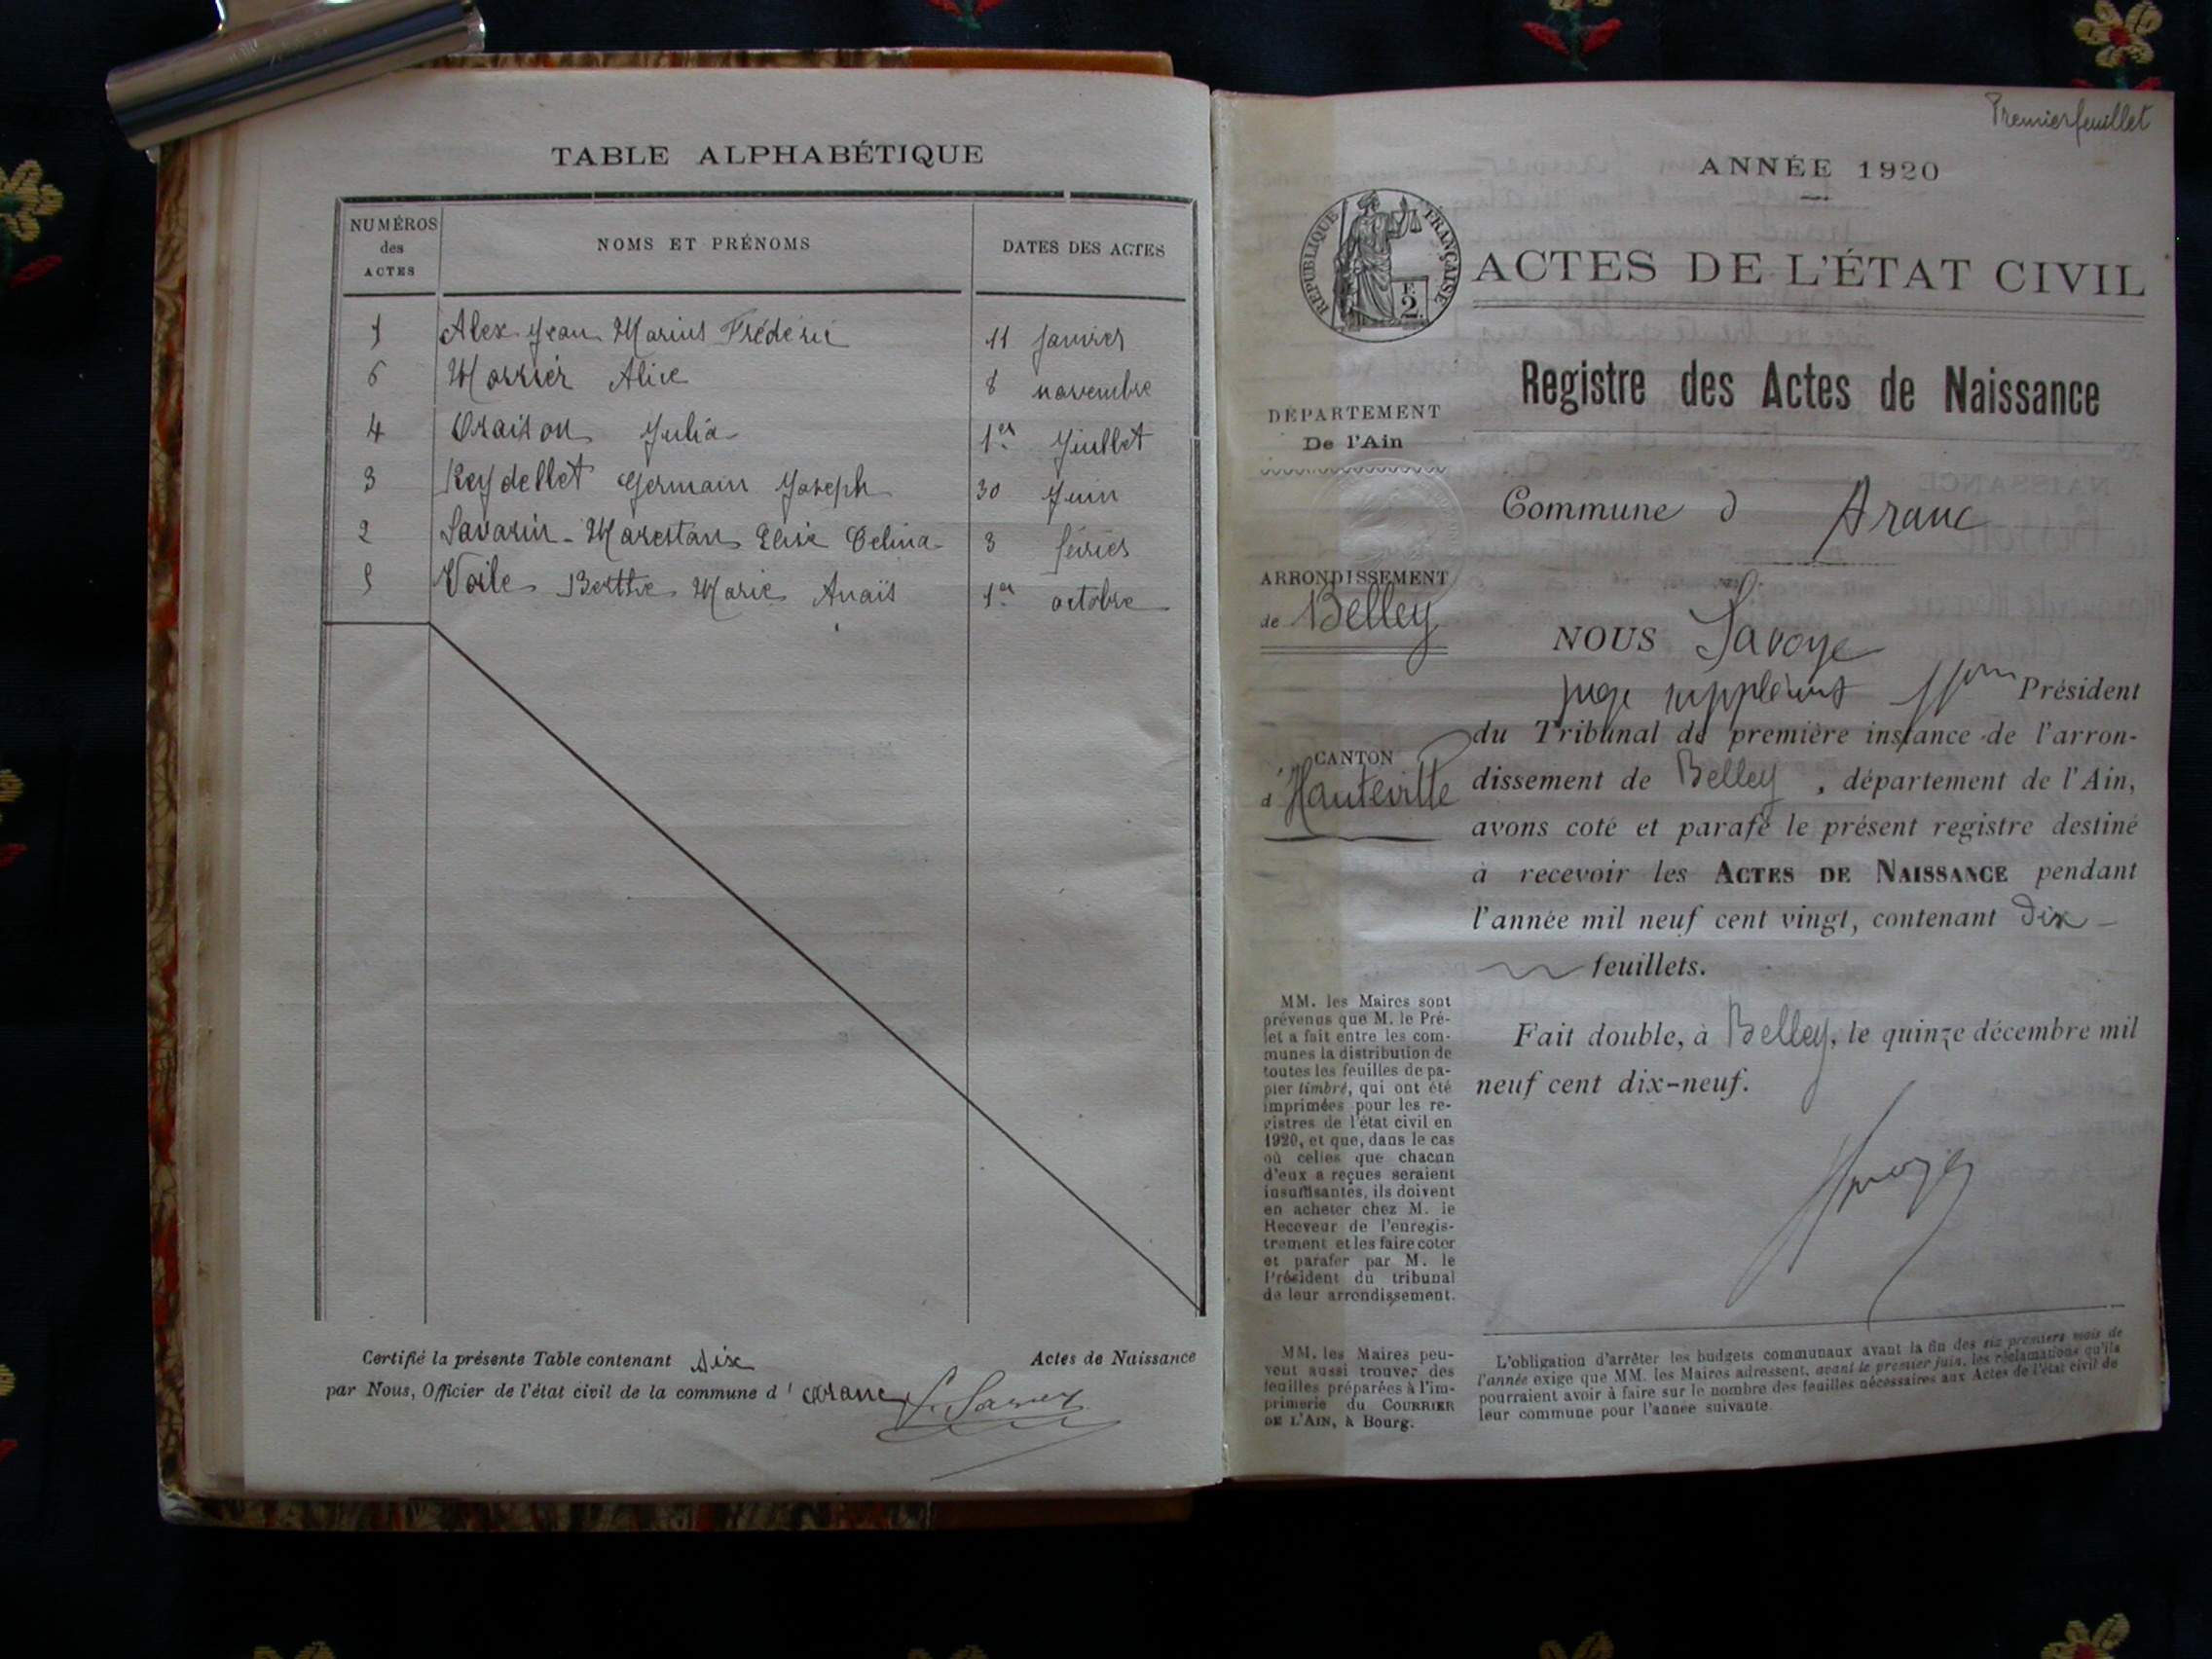 TABLE ALPHABÉTIQUE
NUMÉROS des ACTES NOMS ET PRÉNOMS DATES DES ACTES
1 Alex Jean Marius Frédéric 11 janvier
6 Morrier Alice 8 novembre
4 Oraison Julia 1er Juillet
3 Reydellet Germain Joseph 30 Juin
2 Savarin - Marestan Elise Celina 3 février
5 Voile Berthe Marie Anaïs 1er octobre
Certifié la présente Table contenant six Actes de Naissance
par Nous, Officier de l'état civil de la commune d' Aranc
Premier feuillet
ANNÉE 1920
RÉPUBLIQUE FRANÇAISE
F. 2
ACTES DE L'ÉTAT CIVIL
Registre des Actes de Naissance
DÉPARTEMENT
De l'Ain
Commune d Aranc
ARRONDISSEMENT
de Belley
CANTON
d'Hauteville
NOUS Savoye
juge suppléant Président
du Tribunal de première instance de l'arron-
dissement de Belley, département de l'Ain,
avons coté et parafé le présent registre destiné
à recevoir les ACTES DE NAISSANCE pendant
l'année mil neuf cent vingt, contenant dix
feuillets.
Fait double, à Belley, le quinze décembre mil
neuf cent dix-neuf.
MM. les Maires sont
prévenus que M. le Pré-
fet a fait entre les com-
munes la distribution de
toutes les feuilles de pa-
pier timbré, qui ont été
imprimées pour les re-
gistres de l'état civil en
1920, et que, dans le cas
où celles que chacun
d'eux a reçues seraient
insuffisantes, ils doivent
en acheter chez M. le
Receveur de l'enregis-
trement et les faire coter
et parafer par M. le
Président du tribunal
de leur arrondissement.
MM. les Maires peu-
vent aussi trouver des
feuilles préparées à l'im-
primerie du COURRIER
DE L'AIN, à Bourg.
L'obligation d'arrêter les budgets communaux avant la fin des six premiers mois de
l'année exige que MM. les Maires adressent, avant le premier juin, les réclamations qu'ils
pourraient avoir à faire sur le nombre des feuilles nécessaires aux Actes de l'état civil de
leur commune pour l'année suivante.